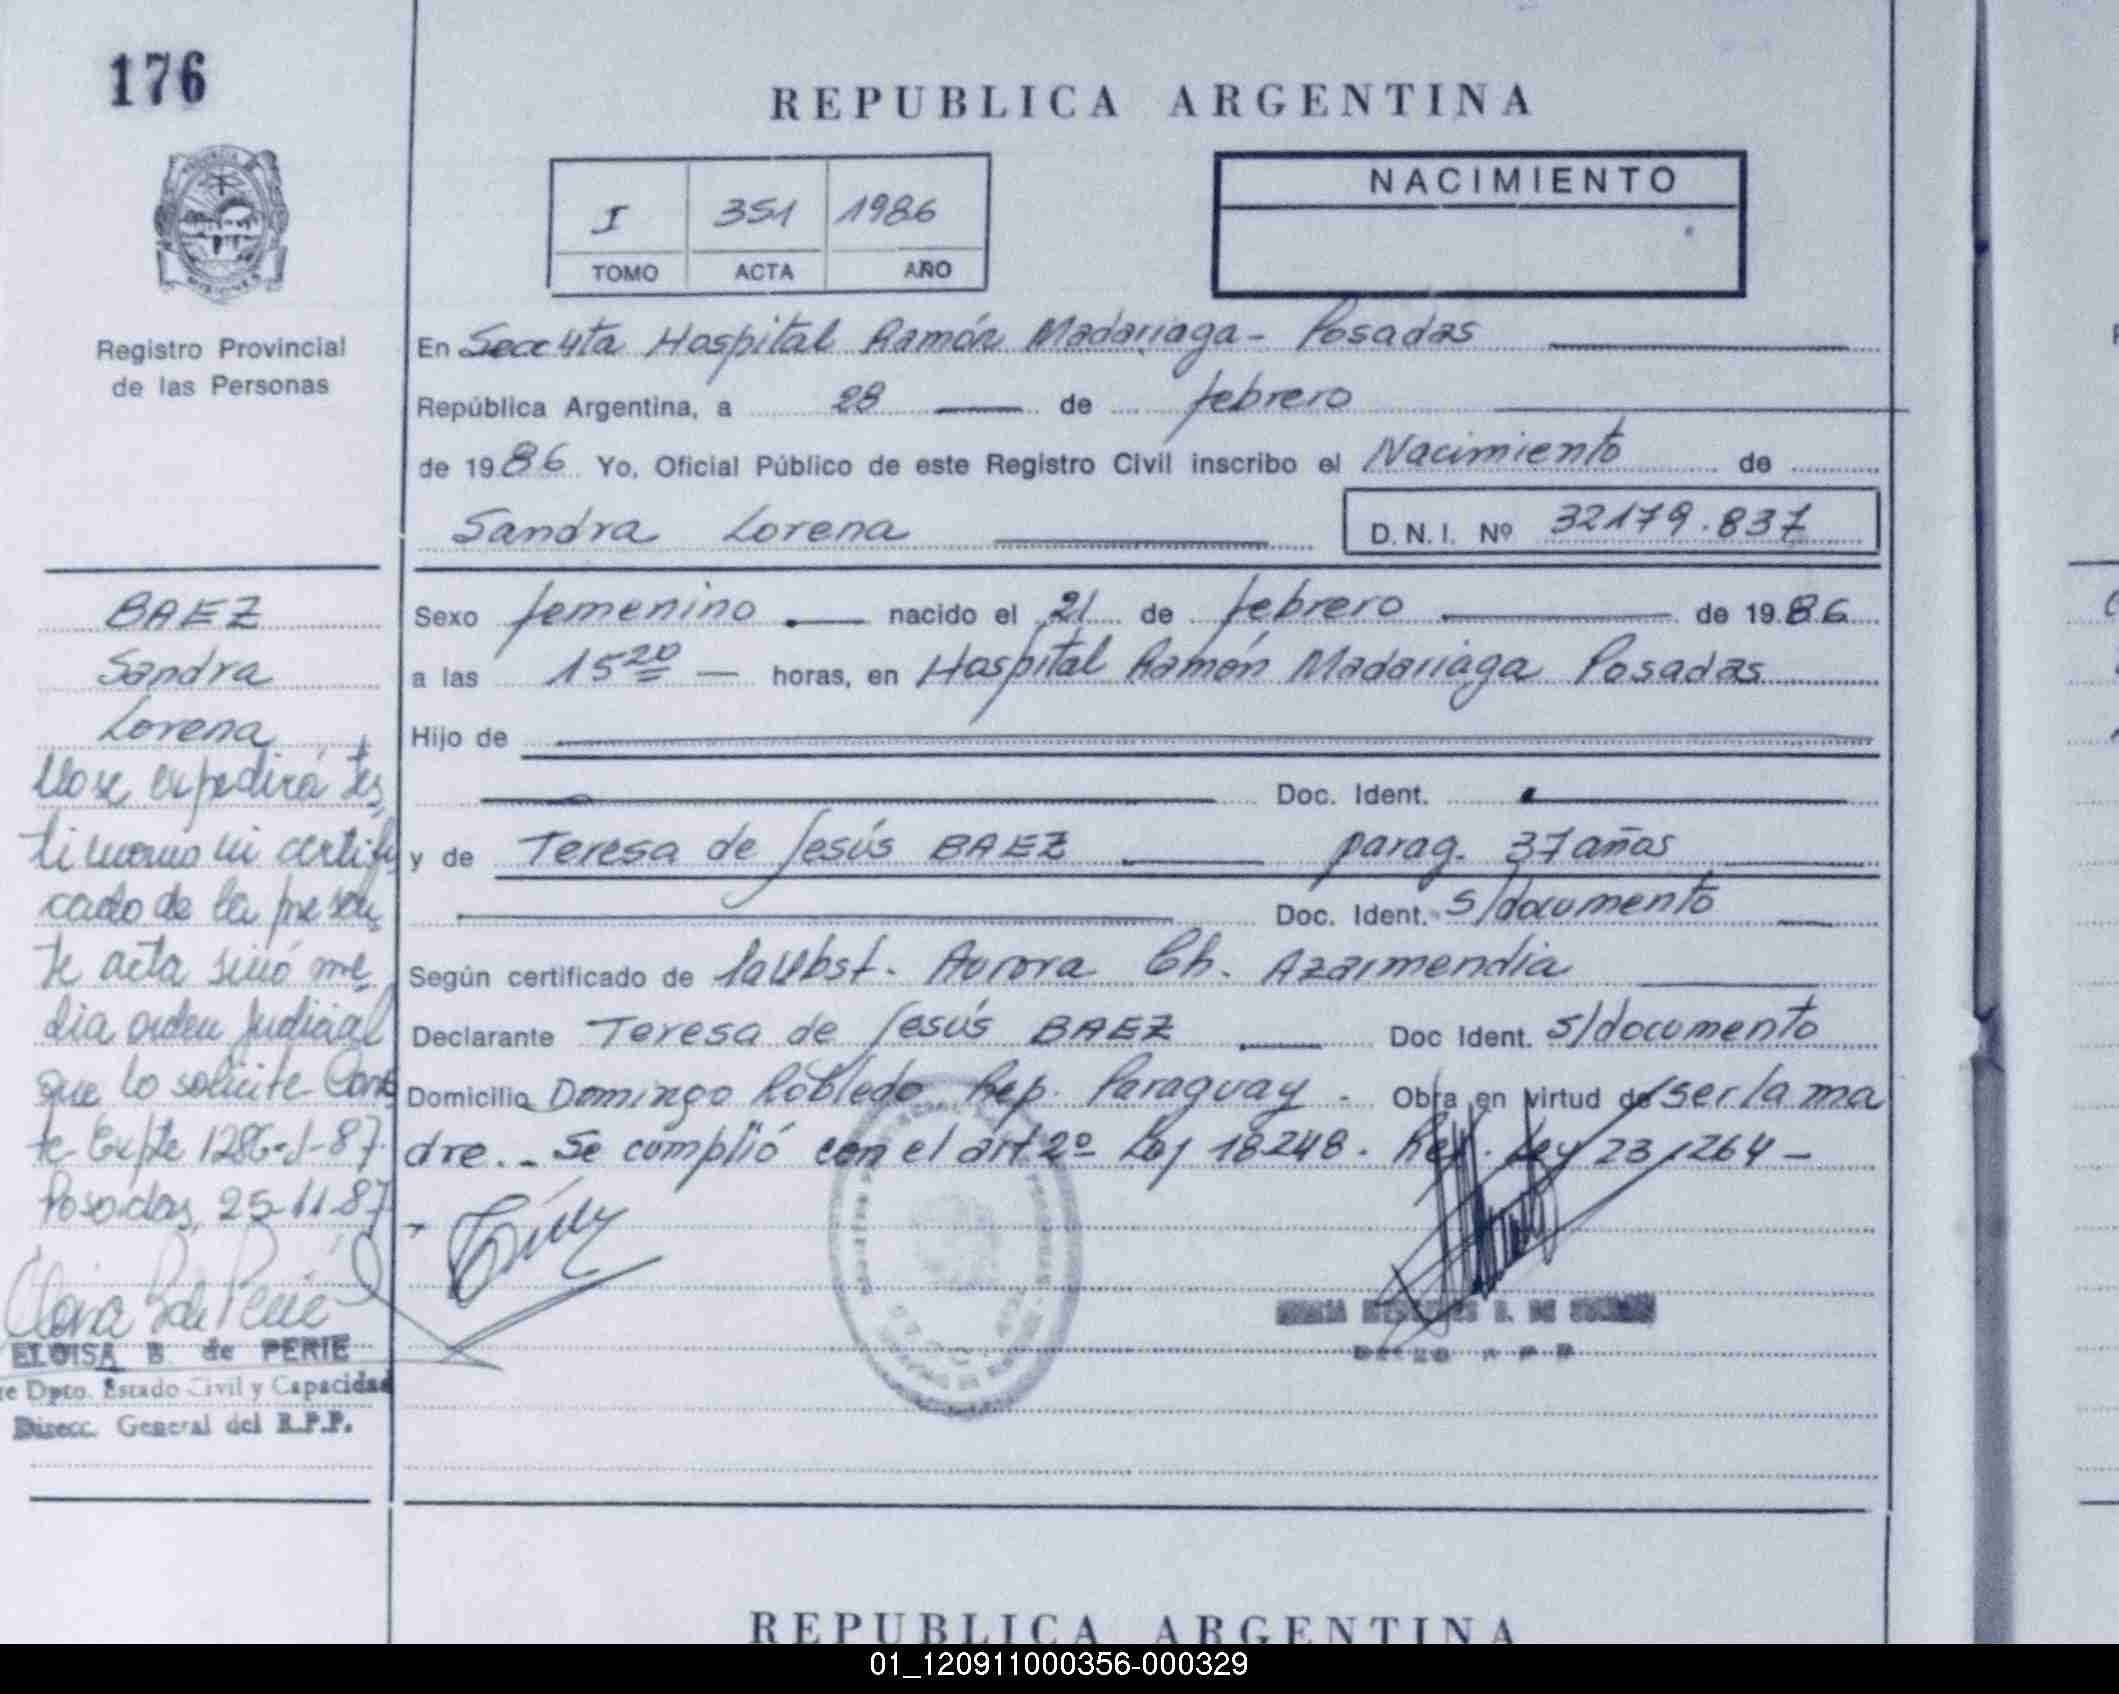 176
REPUBLICA ARGENTINA
NACIMIENTO
I 351 1986
TOMO ACTA AÑO
Registro Provincial
de las Personas
En Secc 4ta Hospital Ramón Madariaga - Posadas
República Argentina, a 28 de febrero
de 1986 Yo, Oficial Público de este Registro Civil inscribo el Nacimiento de
Sandra Lorena D.N.I. Nº 32179.837
BAEZ
Sandra
Lorena
No se expedirá tes
timonio ni certifi
cado de la presen
te acta sinó me
dia orden judicial
que lo solicite Cons
te Expte 1286-J-87.
Posadas, 25-11-87
ELOISA B. de PERIE
Dpto. Estado Civil y Capacidad
Direcc. General del R.P.P.
Sexo femenino nacido el 21 de febrero de 1986
a las 15 20 horas, en Hospital Ramón Madariaga Posadas
Hijo de
Doc. Ident.
y de Teresa de Jesús BAEZ parag. 37 años
Doc. Ident. s/documento
Según certificado de la Obst. Aurora Ch. Azarmendia
Declarante Teresa de Jesús BAEZ Doc Ident. s/documento
Domicilio Domingo Robledo Rep. Paraguay - Obra en virtud de ser la ma
dre.- Se cumplió con el art 2º Ley 18248. Rep. Ley 23.264-
REPUBLICA ARGENTINA
01_120911000356-000329